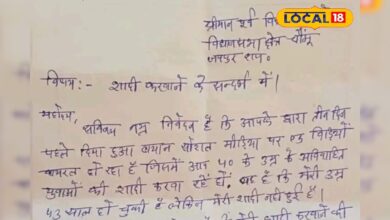 LOCAL 18
श्रीमान पूर्व
विधानसभा क्षेत्र चौमूं
जयपुर राज.
विषय:- शादी करवाने के सन्दर्भ में।
महोदय,
सविनय नम्र निवेदन है कि आपके द्वारा तीन दिन
पहले दिया हुआ बयान सोशल मीडिया पर विडियो
वायरल हो रहा है जिसमें आप 40 के उम्र के अविवाहित
युवाओं की शादी करवा रहे हों। यह है कि मेरी उम्र
43 साल हो चुकी है लेकिन मेरी शादी नहीं हुई है।
शादी करवाने की